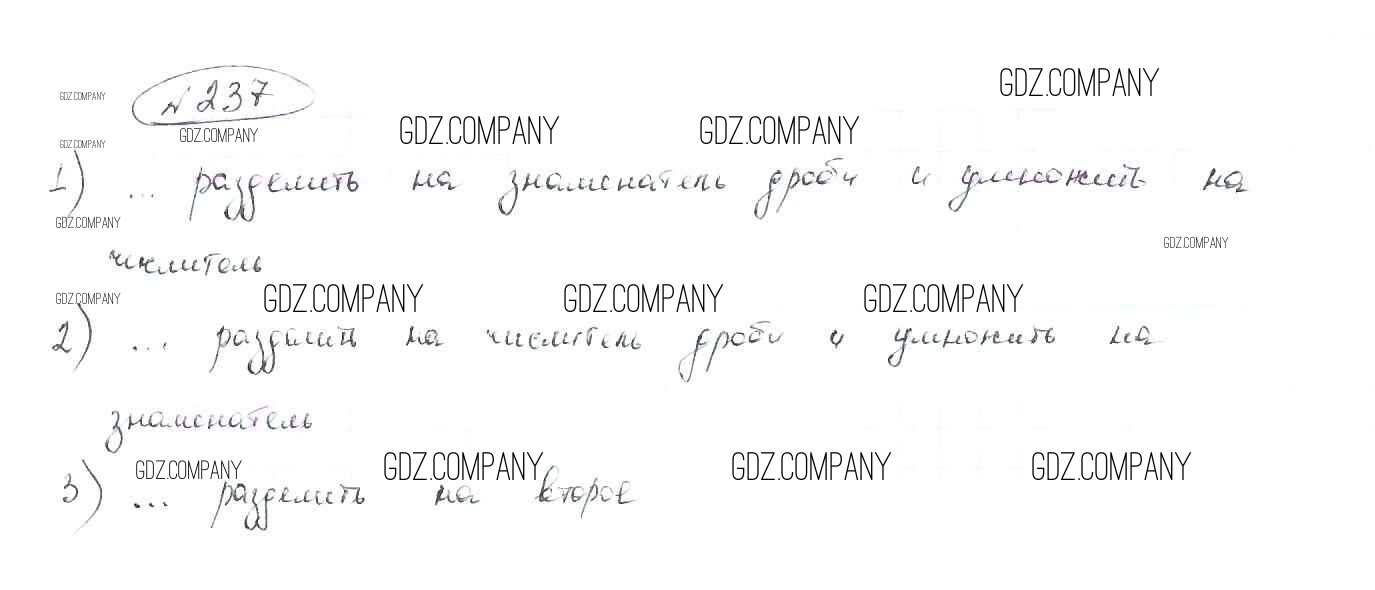 № 237
GDZ.COMPANY
GDZ.COMPANY
GDZ.COMPANY GDZ.COMPANY GDZ.COMPANY
GDZ.COMPANY
1) ... разделить на знаменатель дроби и умножить на
GDZ.COMPANY
GDZ.COMPANY
числитель
GDZ.COMPANY GDZ.COMPANY GDZ.COMPANY GDZ.COMPANY
2) ... разделить на числитель дроби и умножить на
знаменатель
GDZ.COMPANY GDZ.COMPANY GDZ.COMPANY GDZ.COMPANY
3) ... разделить на второе